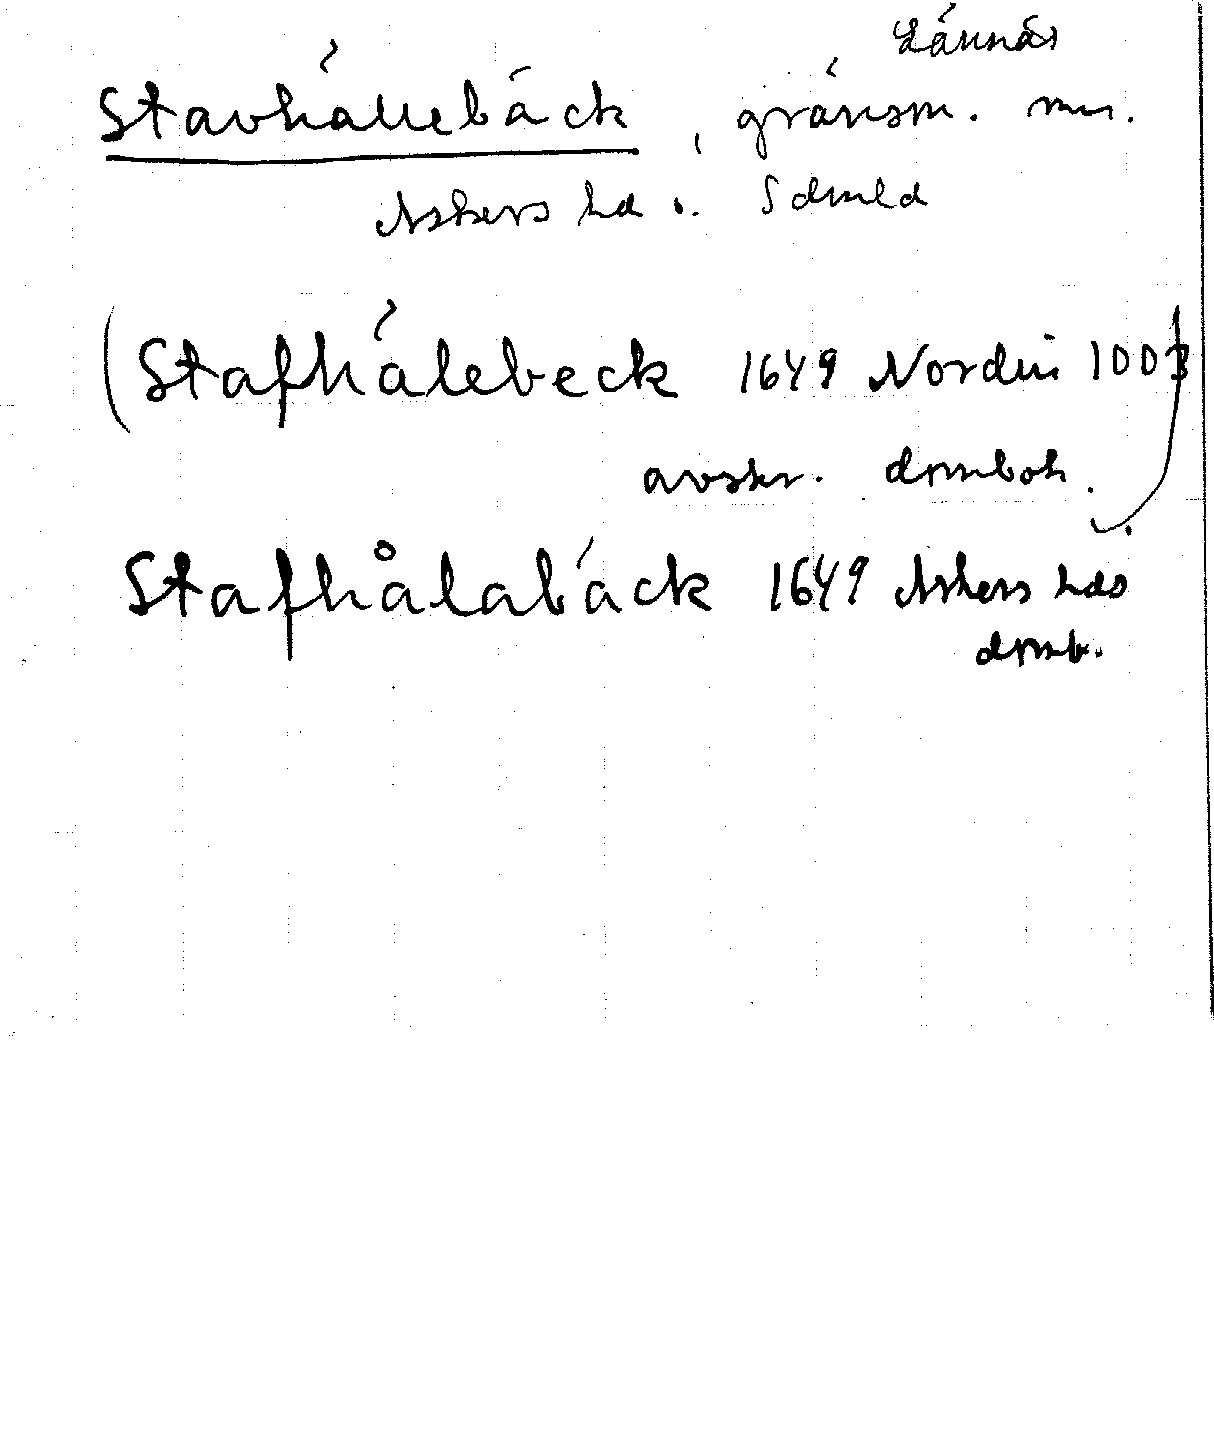 Lännäs
Stavhällebäck, gränsm. m.
Askers hd i Sdmld
(Stafhälebeck 1649 Nordin 1003
avskr. dombok.)
Stafhålabäck 1649 Askers hds
domb.